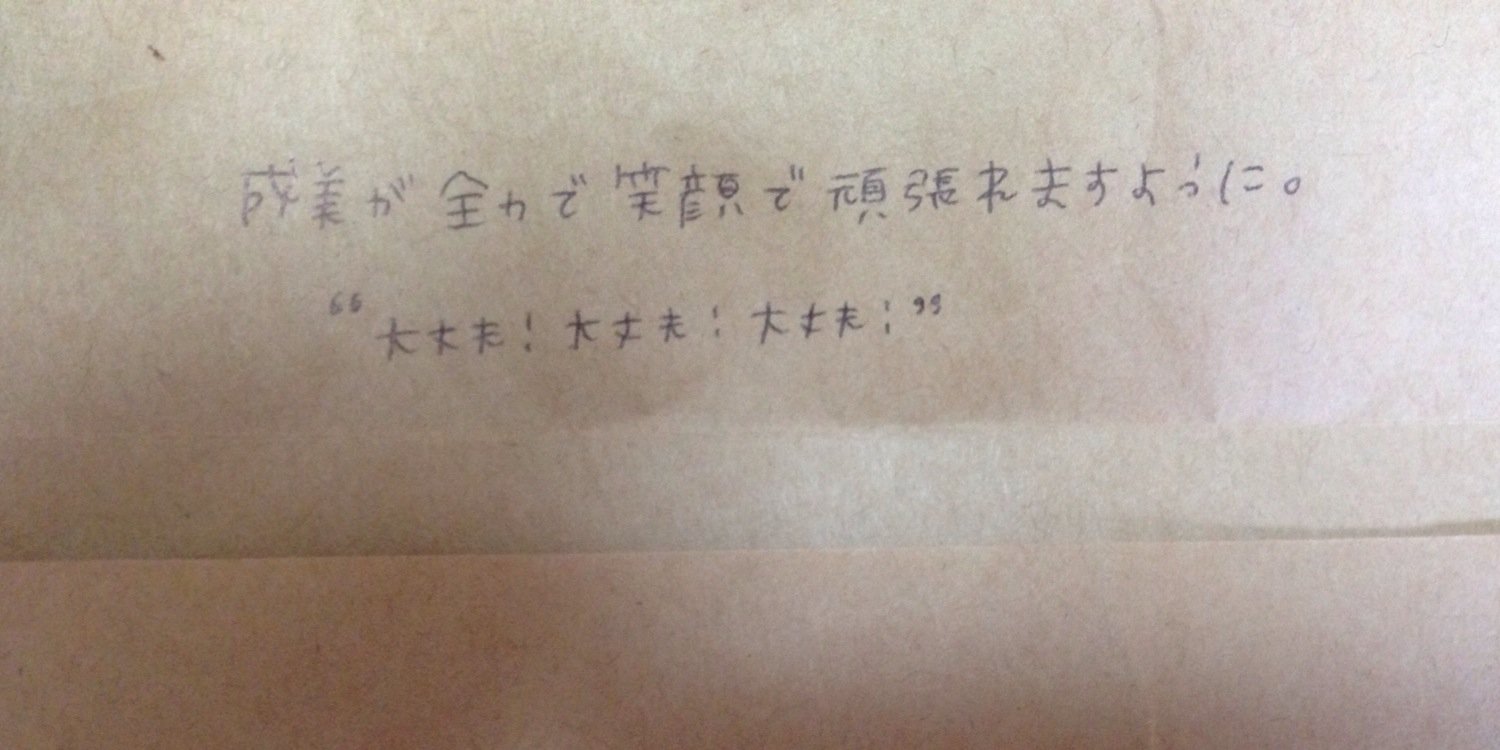 成美が全力で笑顔で頑張れますように。
“大丈夫!大丈夫!大丈夫!”